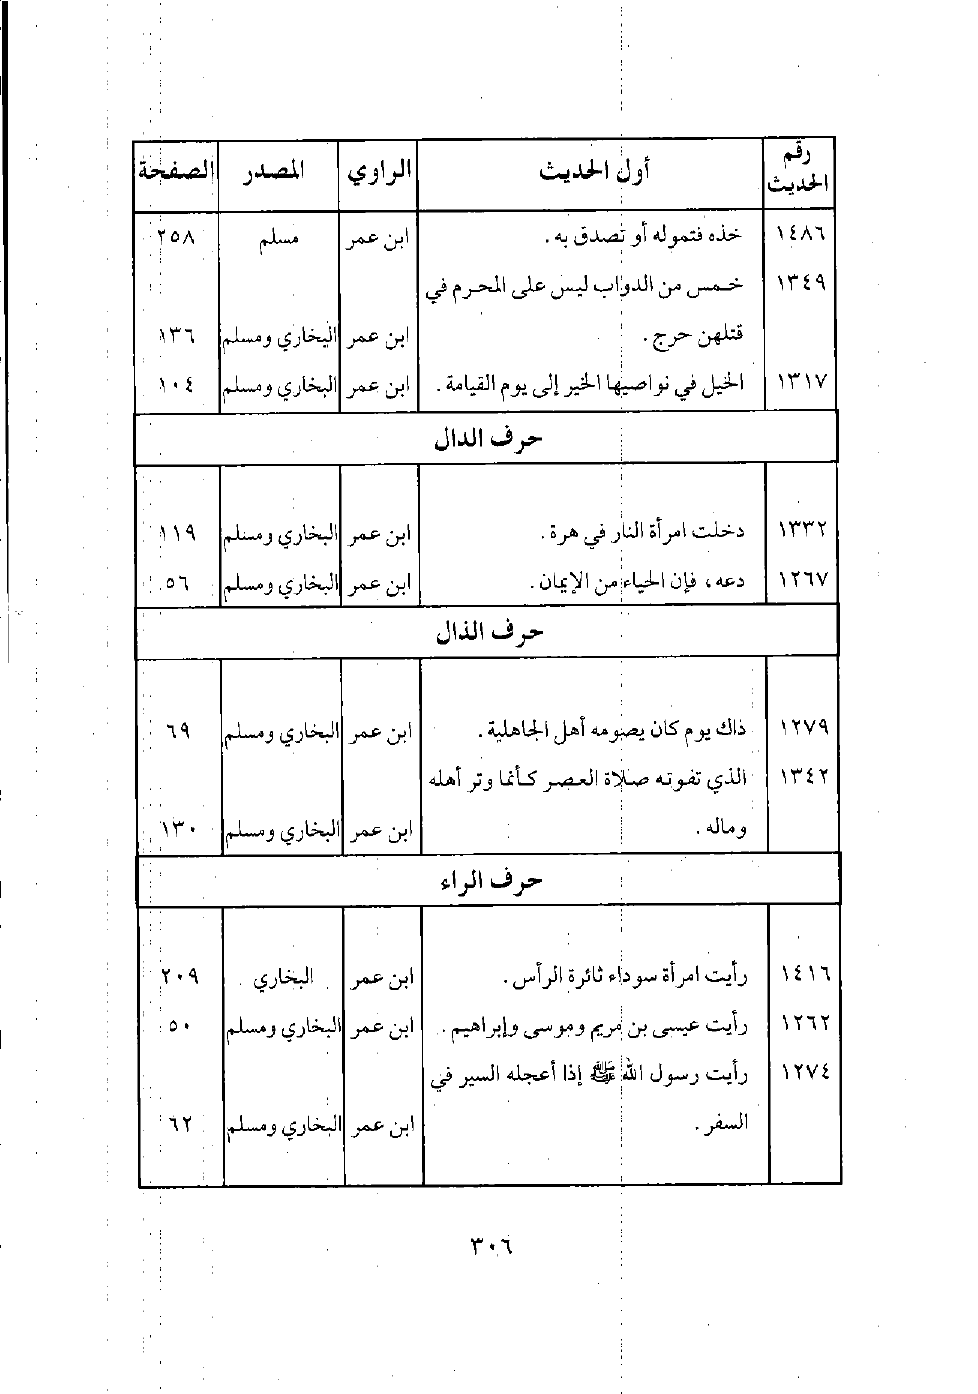 رقم الحديث أول الحديث الراوي المصدر الصفحة
١٤٨٦ خذه فتموله أو تصدق به . ابن عمر مسلم ٢٥٨
١٣٤٩ خمس من الدواب ليس على المحرم في
قتلهن حرج . ابن عمر البخاري ومسلم ١٣٦
١٣١٧ الخيل في نواصيها الخير إلى يوم القيامة . ابن عمر البخاري ومسلم ١٠٤
حرف الدال
١٣٣٢ دخلت امرأة النار في هرة . ابن عمر البخاري ومسلم ١١٩
١٢٦٧ دعه ، فإن الحياء من الإيمان . ابن عمر البخاري ومسلم ٥٦
حرف الذال
١٢٧٩ ذاك يوم كان يصومه أهل الجاهلية . ابن عمر البخاري ومسلم ٦٩
١٣٤٢ الذي تفوته صلاة العصر كأنما وتر أهله
وماله . ابن عمر البخاري ومسلم ١٣٠
حرف الراء
١٤١٦ رأيت امرأة سوداء ثائرة الرأس . ابن عمر البخاري ٢٠٩
١٢٦٢ رأيت عيسى بن مريم وموسى وإبراهيم . ابن عمر البخاري ومسلم ٥٠
١٢٧٤ رأيت رسول الله ﷺ إذا أعجله السير في
السفر . ابن عمر البخاري ومسلم ٦٢
٣٠٦